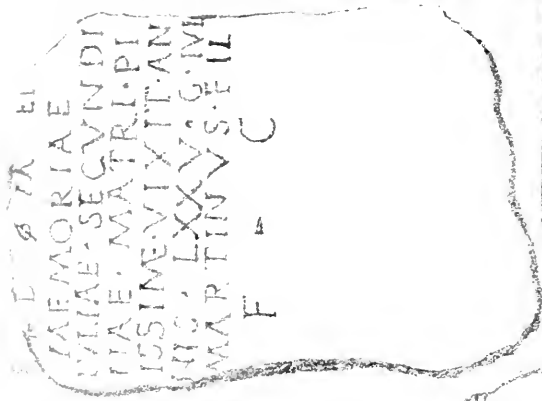 D M ET
MEMORIAE
IVLIAE·SECVNDI
NAE·MATRI·PI
ISSIME·VIXIT·AN
NIS·LXXV·G·M
MARTINVS·FIL
F C